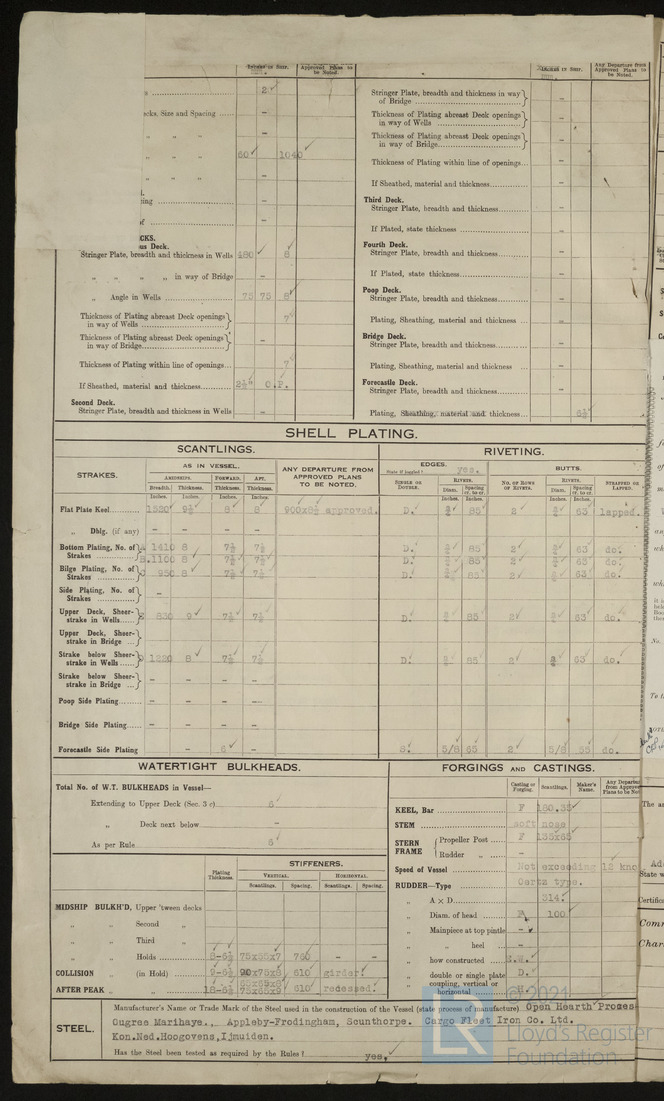 INCHES IN SHIP. Approved Plans to be Noted.
2
ecks. Size and Spacing
60 1040
CKS.
us Deck.
Stringer Plate, breadth and thickness in Wells 480 8
„ „ „ „ in way of Bridge –
„ Angle in Wells 75 75 8
Thickness of Plating abreast Deck openings in way of Wells 7
Thickness of Plating abreast Deck openings in way of Bridge –
Thickness of Plating within line of openings 7
If Sheathed, material and thickness 2½" O.P.
Second Deck.
Stringer Plate, breadth and thickness in Wells –
INCHES IN SHIP. Any Departure from Approved Plans to be Noted.
Stringer Plate, breadth and thickness in way of Bridge –
Thickness of Plating abreast Deck openings in way of Wells –
Thickness of Plating abreast Deck openings in way of Bridge –
Thickness of Plating within line of openings –
If Sheathed, material and thickness –
Third Deck.
Stringer Plate, breadth and thickness –
If Plated, state thickness –
Fourth Deck.
Stringer Plate, breadth and thickness –
If Plated, state thickness –
Poop Deck.
Stringer Plate, breadth and thickness –
Plating, Sheathing, material and thickness –
Bridge Deck.
Stringer Plate, breadth and thickness –
Plating, Sheathing, material and thickness –
Forecastle Deck.
Stringer Plate, breadth and thickness –
Plating, Sheathing, material and thickness 6½
SHELL PLATING.
SCANTLINGS. RIVETING.
STRAKES. AS IN VESSEL. ANY DEPARTURE FROM APPROVED PLANS TO BE NOTED. EDGES. State if joggled? yes. BUTTS.
AMIDSHIPS. FORWARD. AFT. SINGLE OR DOUBLE. RIVETS. NO. OF ROWS OF RIVETS. RIVETS. STRAPPED OR LAPPED.
Breadth. Thickness. Thickness. Thickness. Diam. Spacing cr. to cr. Diam. Spacing cr. to cr.
Inches. Inches. Inches. Inches. Inches. Inches. Inches. Inches.
Flat Plate Keel 1520 9½ 8 8 900x8½ approved. D. ¾ 85 2 ¾ 63 lapped.
„ Dblg. (if any)
Bottom Plating, No. of Strakes A 1410 8 7½ 7½ D. ¾ 85 2 ¾ 63 do.
B.1100 8 7½ 7½ D. ¾ 85 2 ¾ 63 do.
Bilge Plating, No. of Strakes C 950 8 7½ 7½ D. ¾ 85 2 ¾ 63 do.
Side Plating, No. of Strakes –
Upper Deck, Sheerstrake in Wells E 830 9 7½ 7½ D. ¾ 85 2 ¾ 63 do.
Upper Deck, Sheerstrake in Bridge – – – –
Strake below Sheerstrake in Wells D 1220 8 7½ 7½ D. ¾ 85 2 ¾ 63 do.
Strake below Sheerstrake in Bridge – – – –
Poop Side Plating – – – –
Bridge Side Plating – – – –
Forecastle Side Plating – 6 – S. 5/8 65 2 5/8 55 do.
WATERTIGHT BULKHEADS.
Total No. of W.T. BULKHEADS in Vessel—
Extending to Upper Deck (Sec. 3 c) 5
„ Deck next below –
As per Rule 5
Plating Thickness. STIFFENERS.
VERTICAL. HORIZONTAL.
Scantlings. Spacing. Scantlings. Spacing.
MIDSHIP BULKH'D, Upper 'tween decks
„ „ Second „
„ „ Third „
„ „ Holds 8-6½ 75x55x7 760 – –
COLLISION „ (in Hold) 9-6½ 90x75x8 610 girder
AFTER PEAK „ „ 18-6½ 75x65x9 610 recessed.
FORGINGS AND CASTINGS.
Casting or Forging. Scantlings. Maker's Name. Any Departure from Approved Plans to be Noted
KEEL, Bar F 180.35
STEM soft nose
STERN FRAME Propeller Post F 135x65
Rudder „ –
Speed of Vessel Not exceeding 12 kno
RUDDER—Type Oertz type.
„ A × D 314.
„ Diam. of head 100
„ Mainpiece at top pintle –
„ „ heel –
„ how constructed
„ double or single plate D.
„ coupling, vertical or horizontal
STEEL. Manufacturer's Name or Trade Mark of the Steel used in the construction of the Vessel (state process of manufacture) Open Hearth Proces
Ougree Marihaye., Appleby-Frodingham, Scunthorpe. Cargo Fleet Iron Co. Ltd.
Kon.Ned.Hoogovens,Ijmuiden.
Has the Steel been tested as required by the Rules? yes.
© 2021
LR Lloyd's Register
Foundation